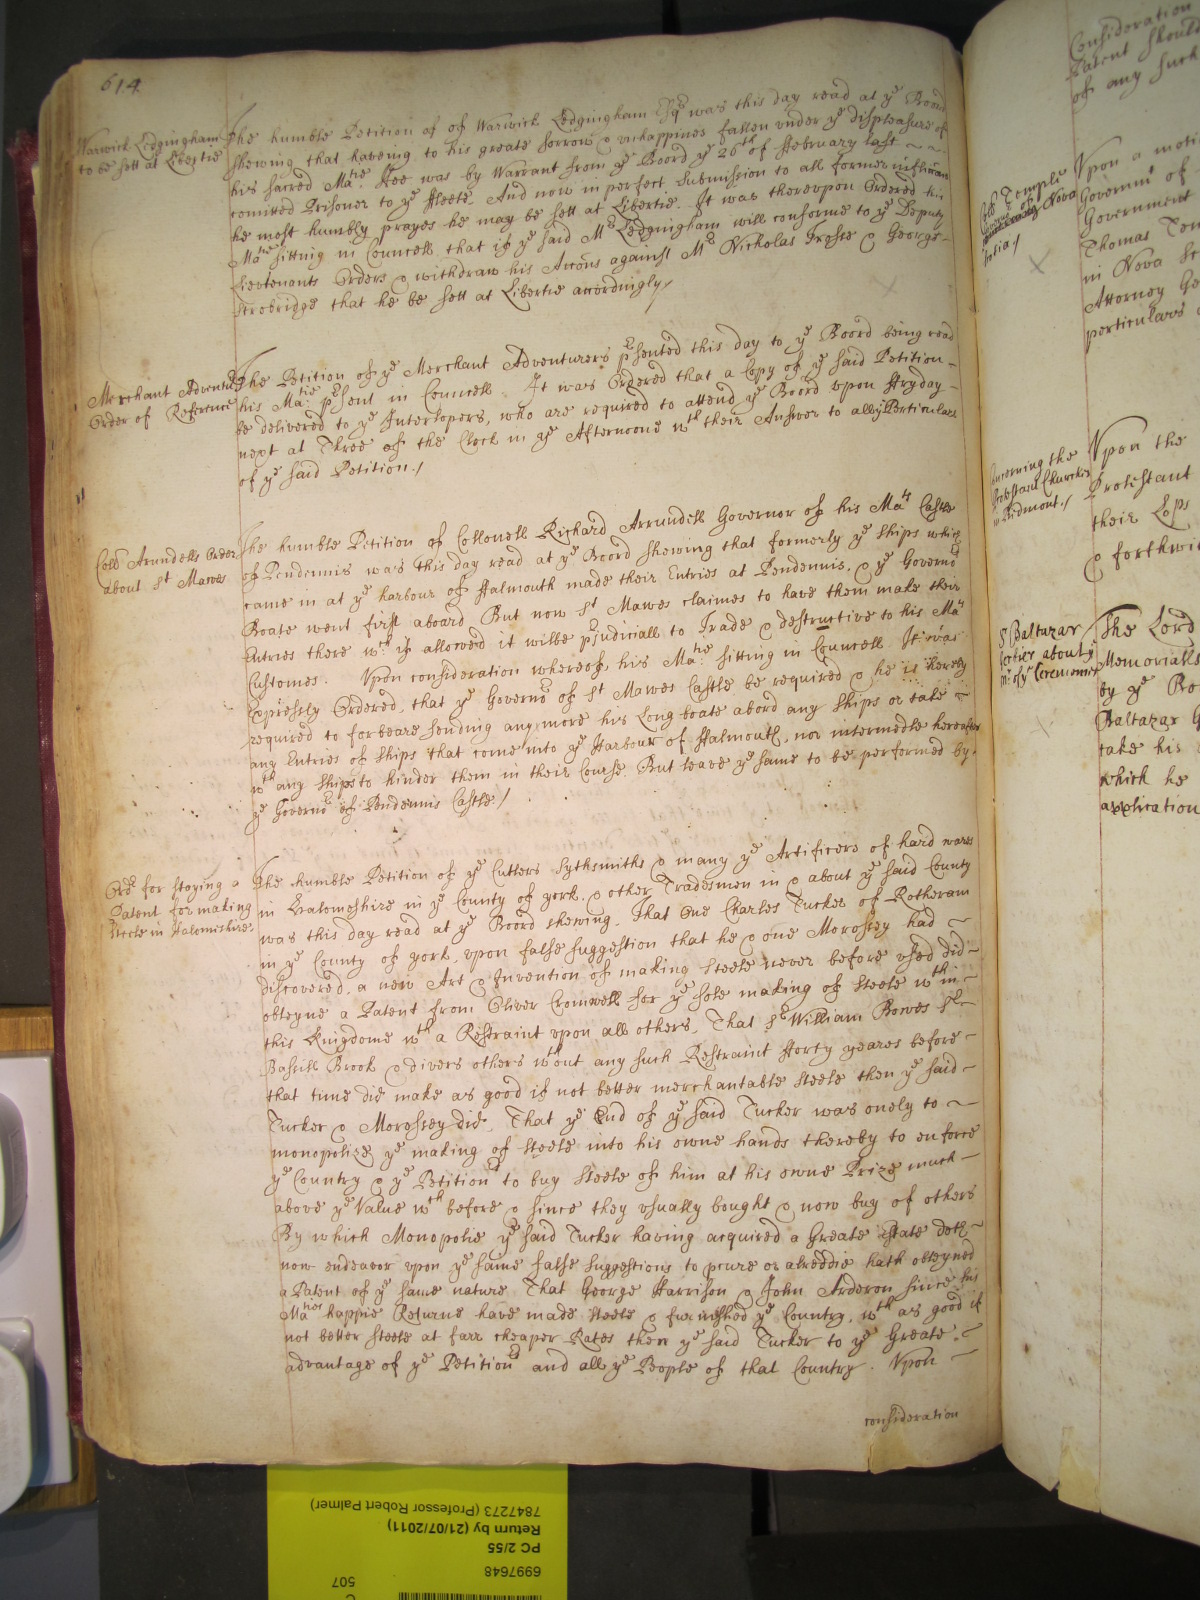 614
Warwick Ledgingham
to be sett at Libertie
The humble Petition of of Warwick Ledgingham Esqr was this day read at ye Board
shewing that haveing to his greate sorrow & vnhappines fallen vnder ye displeasure of
his sacred Matie. Hee was by Warrant from ye Board ye 26th of February last
comitted Prisoner to ye Fleete. And now in perfect Submission to all former
he most humbly prayes he may be sett at Libertie. It was therevpon Ordered his
Matie sitting in Councell that if ye said Mr Ledgingham will conforme to ye Deputy
Lieutenants Orders & withdraw his Accons against Mr Nicholas Froste & George
Strobridge that he be sett at Libertie accordingly/
Merchant Adventurrs
Order of Reference
The Petition of ye Merchant Adventurers prsented this day to ye Board being read
his Matie prsent in Councell It was Ordered that a Copy of ye said Petition
be delivered to ye Interlopers, who are required to attend ye Board vpon Fryday
next at Three of the Clock in ye Afternoone wth their Answer to all ye Perticulars
of ye said Petition./
Coll Arundells Order
about St Mawes
The humble Petition of Collonell Richard Arrundell Governor of his Mats Castle
of Pendennis was this day read at ye Board shewing that formerly ye ships which
came in at ye harbour of Falmouth made their Entries at Pendennis, & ye Governrs
Boate went first aboard. But now St Mawes claimes to have them make their
Entries there wch if allowed it wilbe prjudiciall to Trade & destructive to his Mats
Customes. Vpon consideration whereof, his Matie sitting in Councell It was
Expressly Ordered, that ye Governr of St Mawes Castle be required & he is hereby
required to forbeare sending any more his Long boate abord any Ships or take
any Entries of Ships that come into ye Harbour of Falmouth, nor intermedle hereafter
wth any Ships to hinder them in their Course. But leave ye same to be performed by
ye Governr of Pendennis Castle./
Ordr for staying a
Patent for making
Steele in Halomshire
The humble Petition of ye Cutlers Sythsmiths & many ye Artificers of hard wares
in Halomeshire in ye County of york. & other Tradesmen in & about ye said County
was this day read at ye Board shewing. That One Charles Tucker of Rotheram
in ye County of york, vpon false suggestion that he & one Morossey had
discovered, a new Art & Invention of making steele never before vsed did
obteyne a Patent from Oliver Cromwell for ye sole making of Steele wthin
this Kingdome wth a Restraint vpon all others, That Sr William Bowes Sr
Bassill Brook & divers others wthout any such Restraint Forty yeares before
that time did make as good if not better merchantable Steele then ye said
Tucker & Morossey did. That ye End of ye said Tucker was onely to
monopolize ye making of Steele into his owne hands thereby to enforce
ye Country & ye Petitionrs to buy Steele of him at his owne Prize much
above ye Value wch before & since they vsually bought & now buy of others
By which Monopolie ye said Tucker having acquired a Greate Estate doth
now endeavor vpon ye same false suggestions to pcure or alreddie hath obteyned
a Patent of ye same nature That George Harrison & John Arderon since his
Maties happie Returne have made Steele & furnished ye Country, wth as good if
not better Steele at farr cheaper Rates then ye said Tucker to ye Greate
advantage of ye Petitionrs and all ye People of that Country. Vpon
consideration
Consideration
Patent should
of any such
Coll Temple
Nova
Upon a moti
Governmt of
Government
Thomas Tem
in Nova Sc
Attorney Ge
perticulars
Concerning the
Protestant Churches
in Piedmont./
Vpon the
Protestant
their Lops
& forthwi
Sr Baltazar
The Lord
Memorialls
by ye Ro
Baltazar G
take his
which he
application
6997648
507
PC 2/55
Return by (21/07/2011)
7847273 (Professor Robert Palmer)